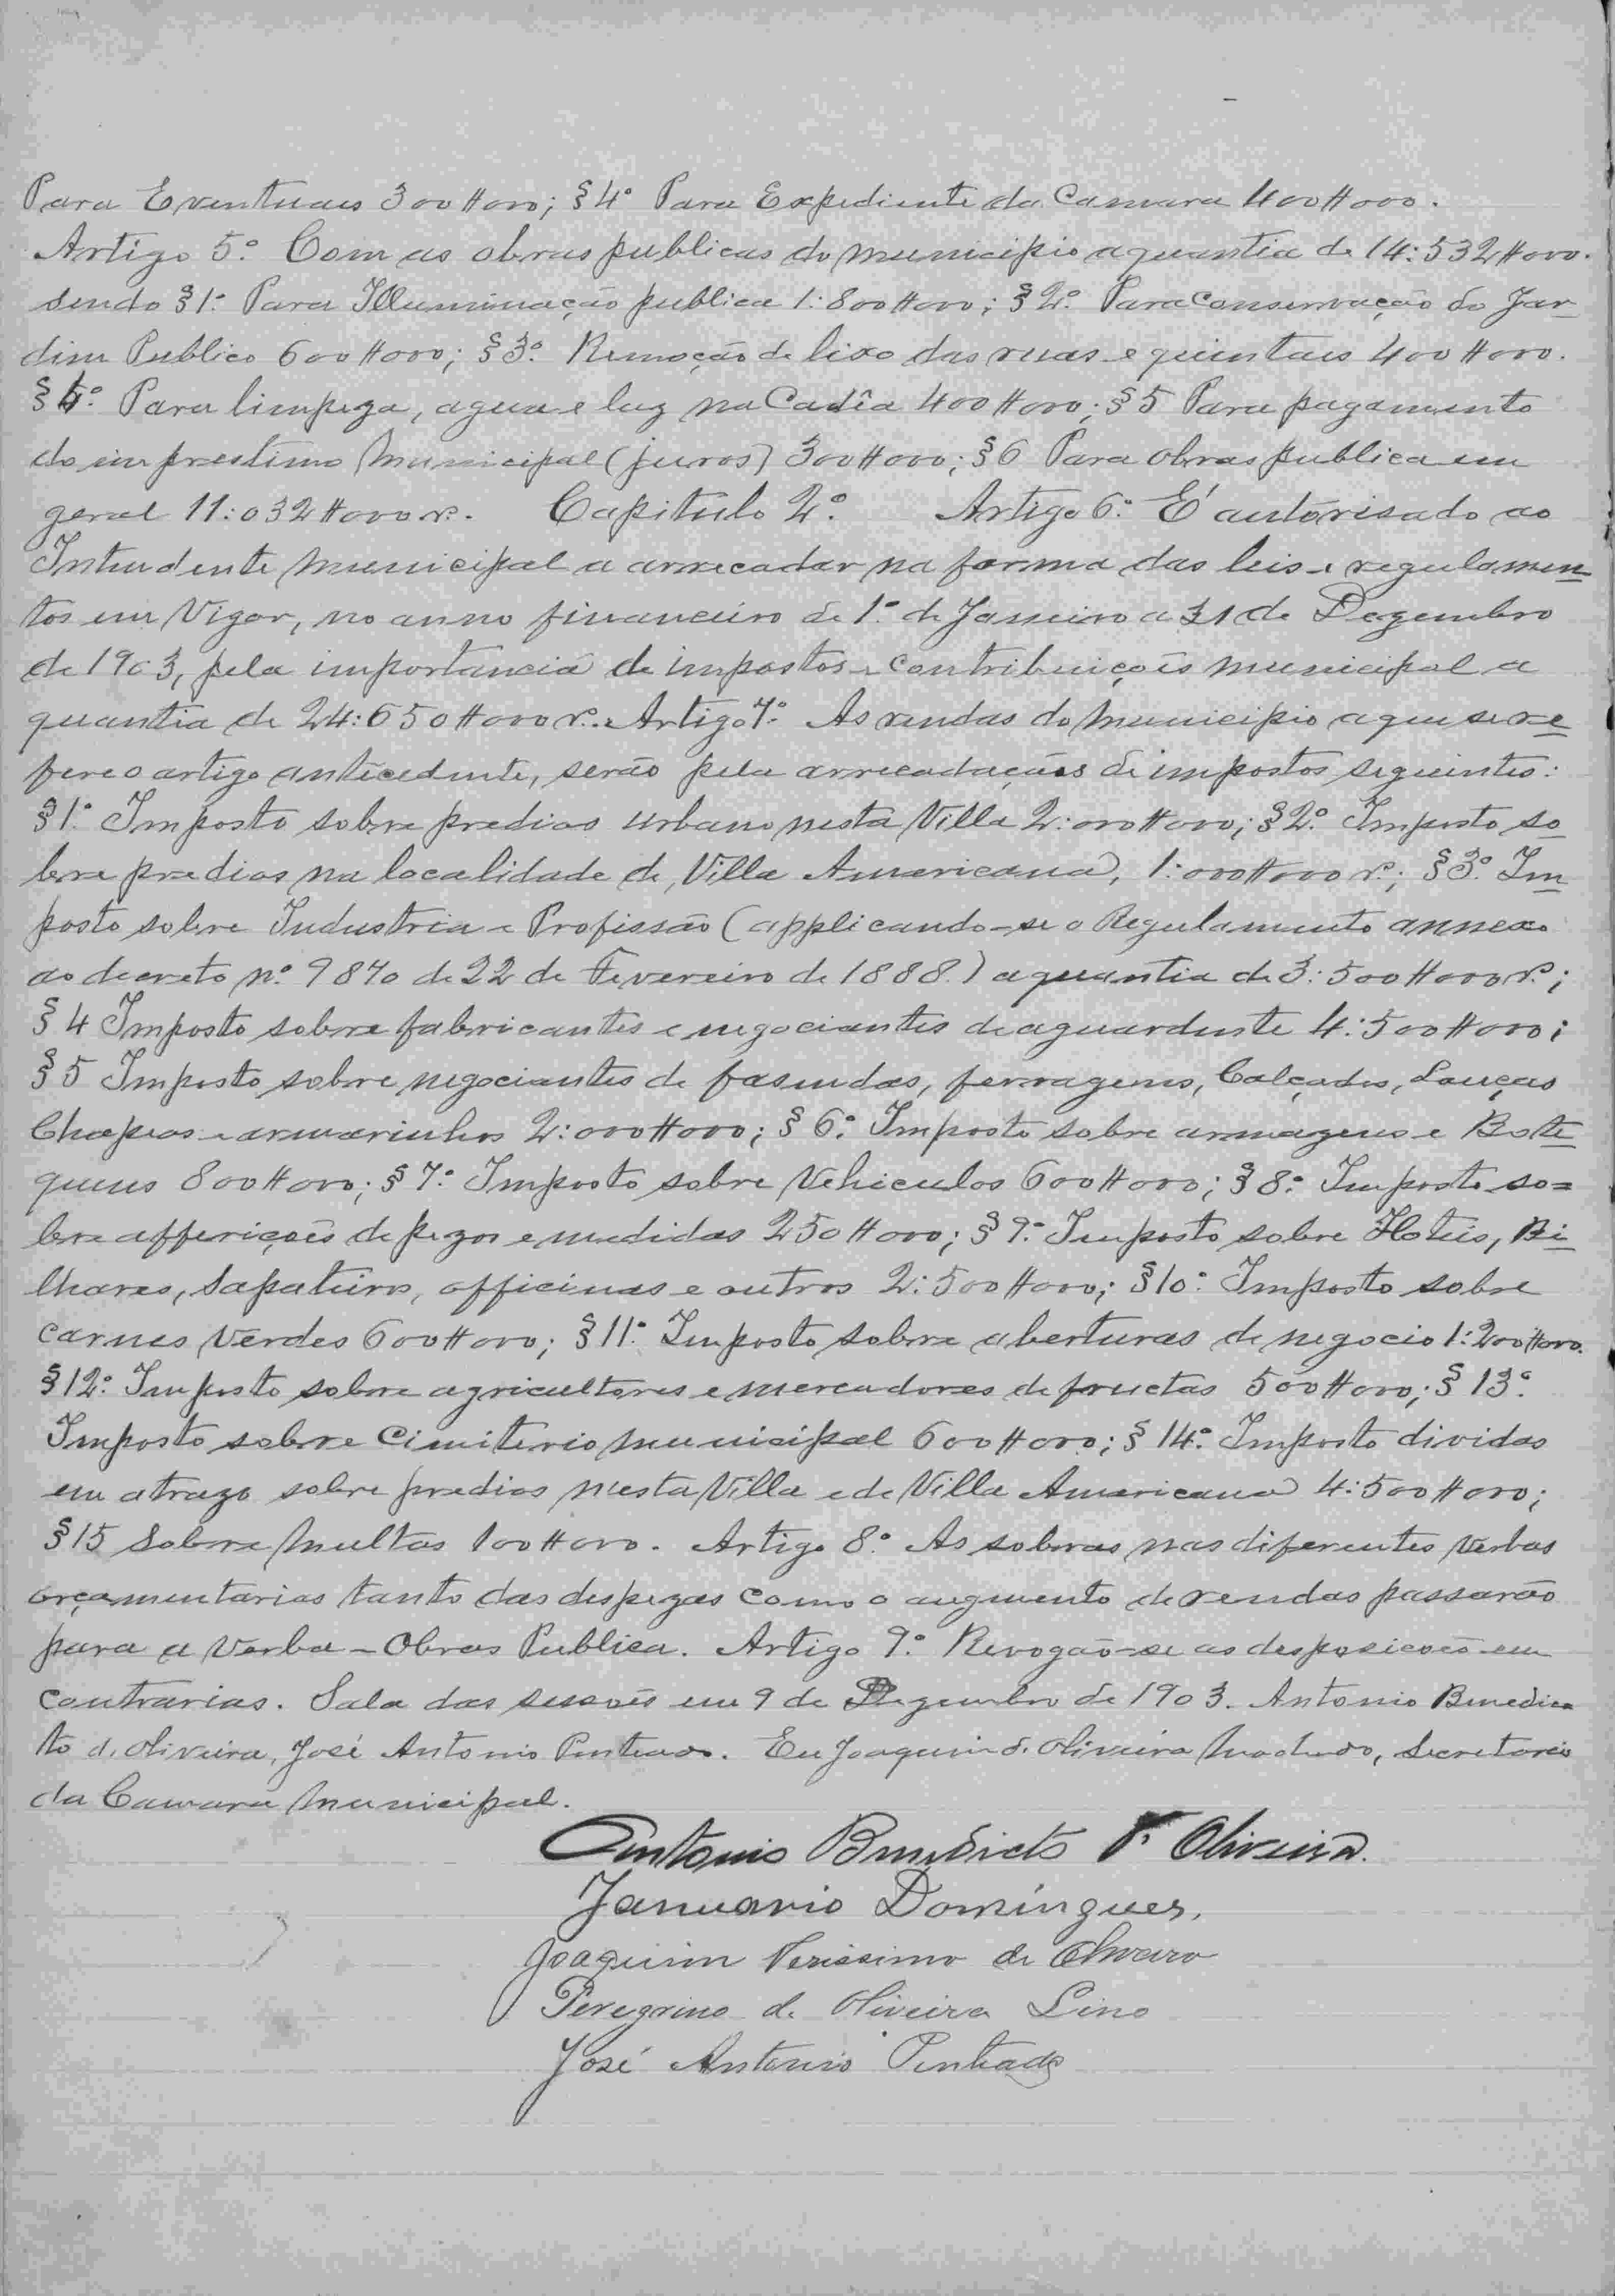 Para Eventuaes 300#000; § 4º Para Expediente da Camara 400#000.
Artigo 5º Com as obras publicas do municipio a quantia de 14:532#000.
sendo § 1º Para Illuminação publica 1:800#000; § 2º Para Conservação do Jar
dim Publico 600#000; § 3º Remoção de lixo das ruas e quintaes 400#000.
§ 4º Para limpeza, agua e luz na Cadêa 400#000; § 5 Para pagamento
do imprestimo Municipal (juros) 300#000; § 6 Para obras publica em
geral 11:032#000 r. Capitulo 2º Artigo 6º É autorisado ao
Intendente Municipal a arrecadar na forma das leis e regulamen
tos em Vigor, no anno financeiro de 1º de Janeiro a 31 de Dezembro
de 1903, pela importancia de impostos e contribuições municipal a
quantia de 24:650#000 r. Artigo 7º As rendas do Municipio a que se re
fere o artigo antecedente, serão pela arrecadações de impostos seguintes:
§ 1º Imposto sobre predios urbano nesta Villa 2:000#000; § 2º Imposto so
bre predios na localidade de, Villa Americana, 1:000#000 r.; § 3º Im
posto sobre Industria e Profissão (applicando-se o Regulamento annexo
ao decreto nº 9870 de 22 de Fevereiro de 1888.) a quantia de 3:500#000 r.;
§ 4 Imposto sobre fabricantes e negociantes de aguardente 4:500#000;
§ 5 Imposto sobre negociantes de fasendas, ferragens, Calçados, Louças
Chapeos e armarinhos 2:000#000; § 6º Imposto sobre armagens e Bote
quens 800#000; § 7º Imposto sobre Vehiculos 600#000; § 8º Imposto so=
bre afferições de pezos e medidas 250#000; § 9º Imposto sobre Hoteis, Bi
lhares, Sapateiros, officinas e outros 2:500#000; § 10º Imposto sobre
carnes Verdes 600#000; § 11º Imposto sobre aberturas de negocio 1:200#000.
§ 12º Imposto sobre agricultores e mercadores de fructas 500#000; § 13º
Imposto sobre Cimiterio Municipal 600#000; § 14º Imposto dividas
em atrazo sobre predios nesta Villa e de Villa Americana 4:500#000;
§ 15 Sobre Multas 100#000. Artigo 8º As sobras nas diferentes Verbas
orçamentarias tanto das despezas como o augmento de rendas passarão
para a Verba - Obras Publica. Artigo 9º Revogão-se as desposicoes em
contrarias. Sala das sessoês em 9 de Dezembro de 1903. Antonio Benedic
to d. Oliveira, José Antonio Penteado. Eu Joaquim d. Oliveira Machado, Secretario
da Camara Municipal.
Antonio Benedicto d' Oliveira.
Januario Domingues.
Joaquim Verissimo de
Peregrino d. Oliveira Lino
José Antonio Penteado